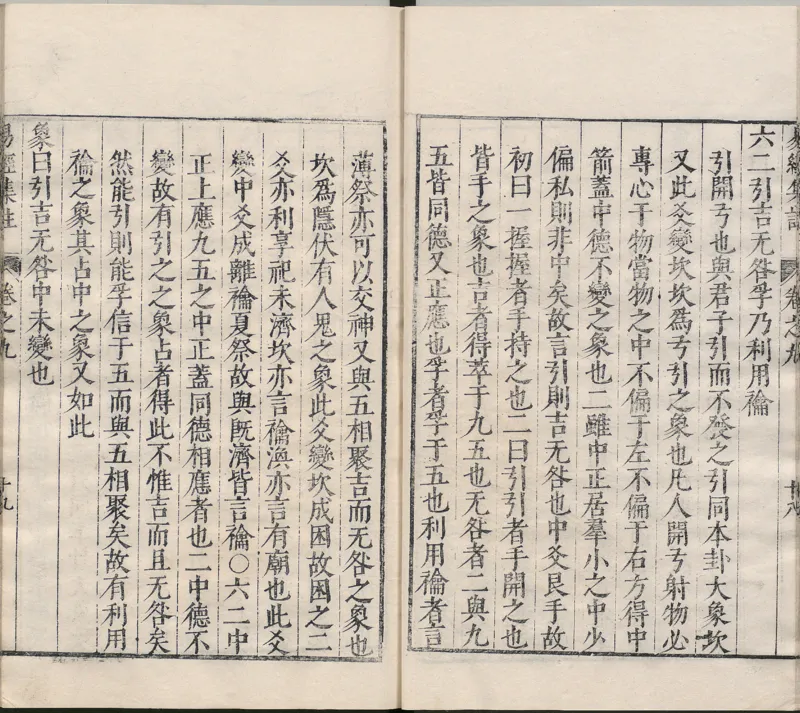 六二引吉无咎孚乃利用禴
引開弓也與君子引而不發之引同本卦大象坎
又此爻變坎坎爲弓引之象也凡人開弓射物必
專心于物當物之中不偏于左不偏于右方得中
箭蓋中德不變之象也二雖中正居羣小之中少
偏私則非中矣故言引則吉无咎也中爻艮手故
初曰一握握者手持之也二曰引引者手開之也
皆手之象也吉者得萃于九五也无咎者二與九
五皆同德又正應也孚者孚于五也利用禴者言
薄祭亦可以交神又與五相聚吉而无咎之象也
坎爲隱伏有人鬼之象此爻變坎成困故困之二
爻亦利享祀未濟坎亦言禴渙亦言有廟也此爻
變中爻成離禴夏祭故與旣濟皆言禴○六二中
正上應九五之中正蓋同德相應者也二中德不
變故有引之之象占者得此不惟吉而且无咎矣
然能引則能孚信于五而與五相聚矣故有利用
禴之象其占中之象又如此
象曰引吉无咎中未變也
易經集註
卷之九
十九